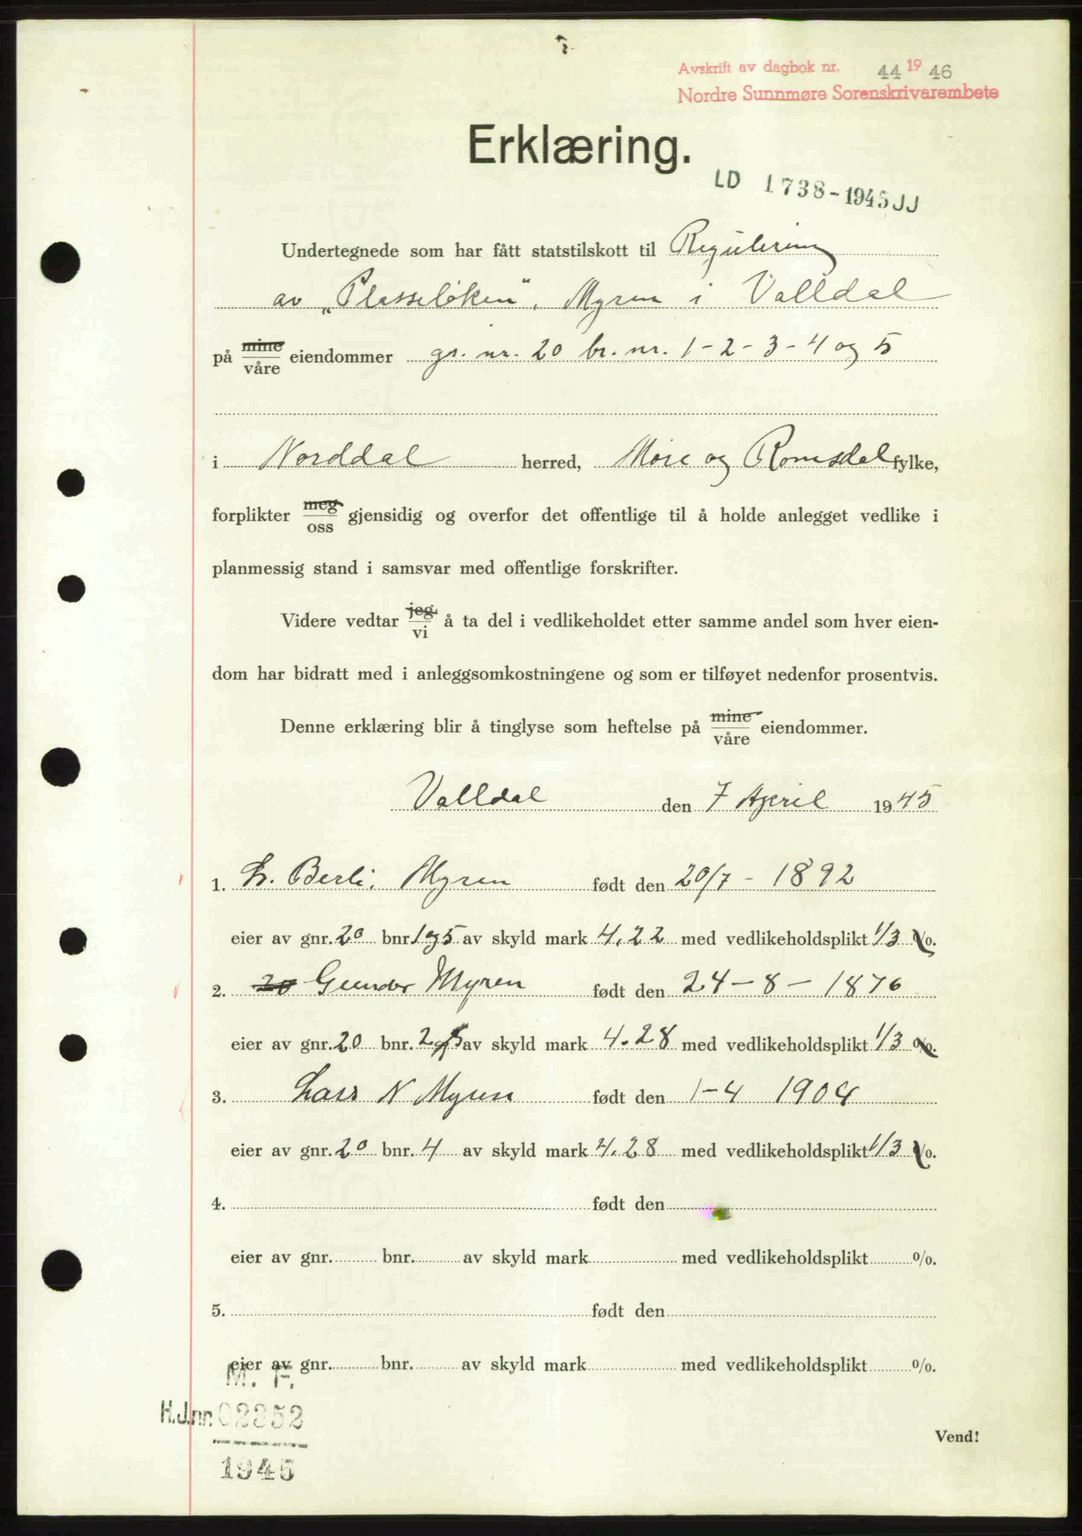 Avskrift av dagbok nr. 44 19 46
Nordre Sunnmøre Sorenskrivarembete
Erklæring.
LD 1738-1945 JJ
Undertegnede som har fått statstilskott til Regulering
av „Plasseløken“, Myren i Valldal
på mine/våre eiendommer gr. nr. 20 br. nr. 1-2-3-4 og 5
i Norddal herred, Møre og Romsdal fylke,
forplikter meg/oss gjensidig og overfor det offentlige til å holde anlegget vedlike i
planmessig stand i samsvar med offentlige forskrifter.
Videre vedtar jeg/vi å ta del i vedlikeholdet etter samme andel som hver eien-
dom har bidratt med i anleggsomkostningene og som er tilføyet nedenfor prosentvis.
Denne erklæring blir å tinglyse som heftelse på mine/våre eiendommer.
Valldal den 7 April 1945
1. L. Berli. Myren født den 20/7 - 1892
eier av gnr. 20 bnr. 1 og 5 av skyld mark 4.22 med vedlikeholdsplikt 1/3 %.
2. 20 Gunder Myren født den 24-8-1876
eier av gnr. 20 bnr. 2 av skyld mark 4.28 med vedlikeholdsplikt 1/3 %.
3. Lars N Myren født den 1-4 1904
eier av gnr. 20 bnr. 4 av skyld mark 4.28 med vedlikeholdsplikt 1/3 %.
4. født den
eier av gnr. bnr. av skyld mark med vedlikeholdsplikt %.
5. født den
eier av gnr. bnr. av skyld mark med vedlikeholdsplikt %.
M. F.
H.J.nr. 02352
1945
Vend!